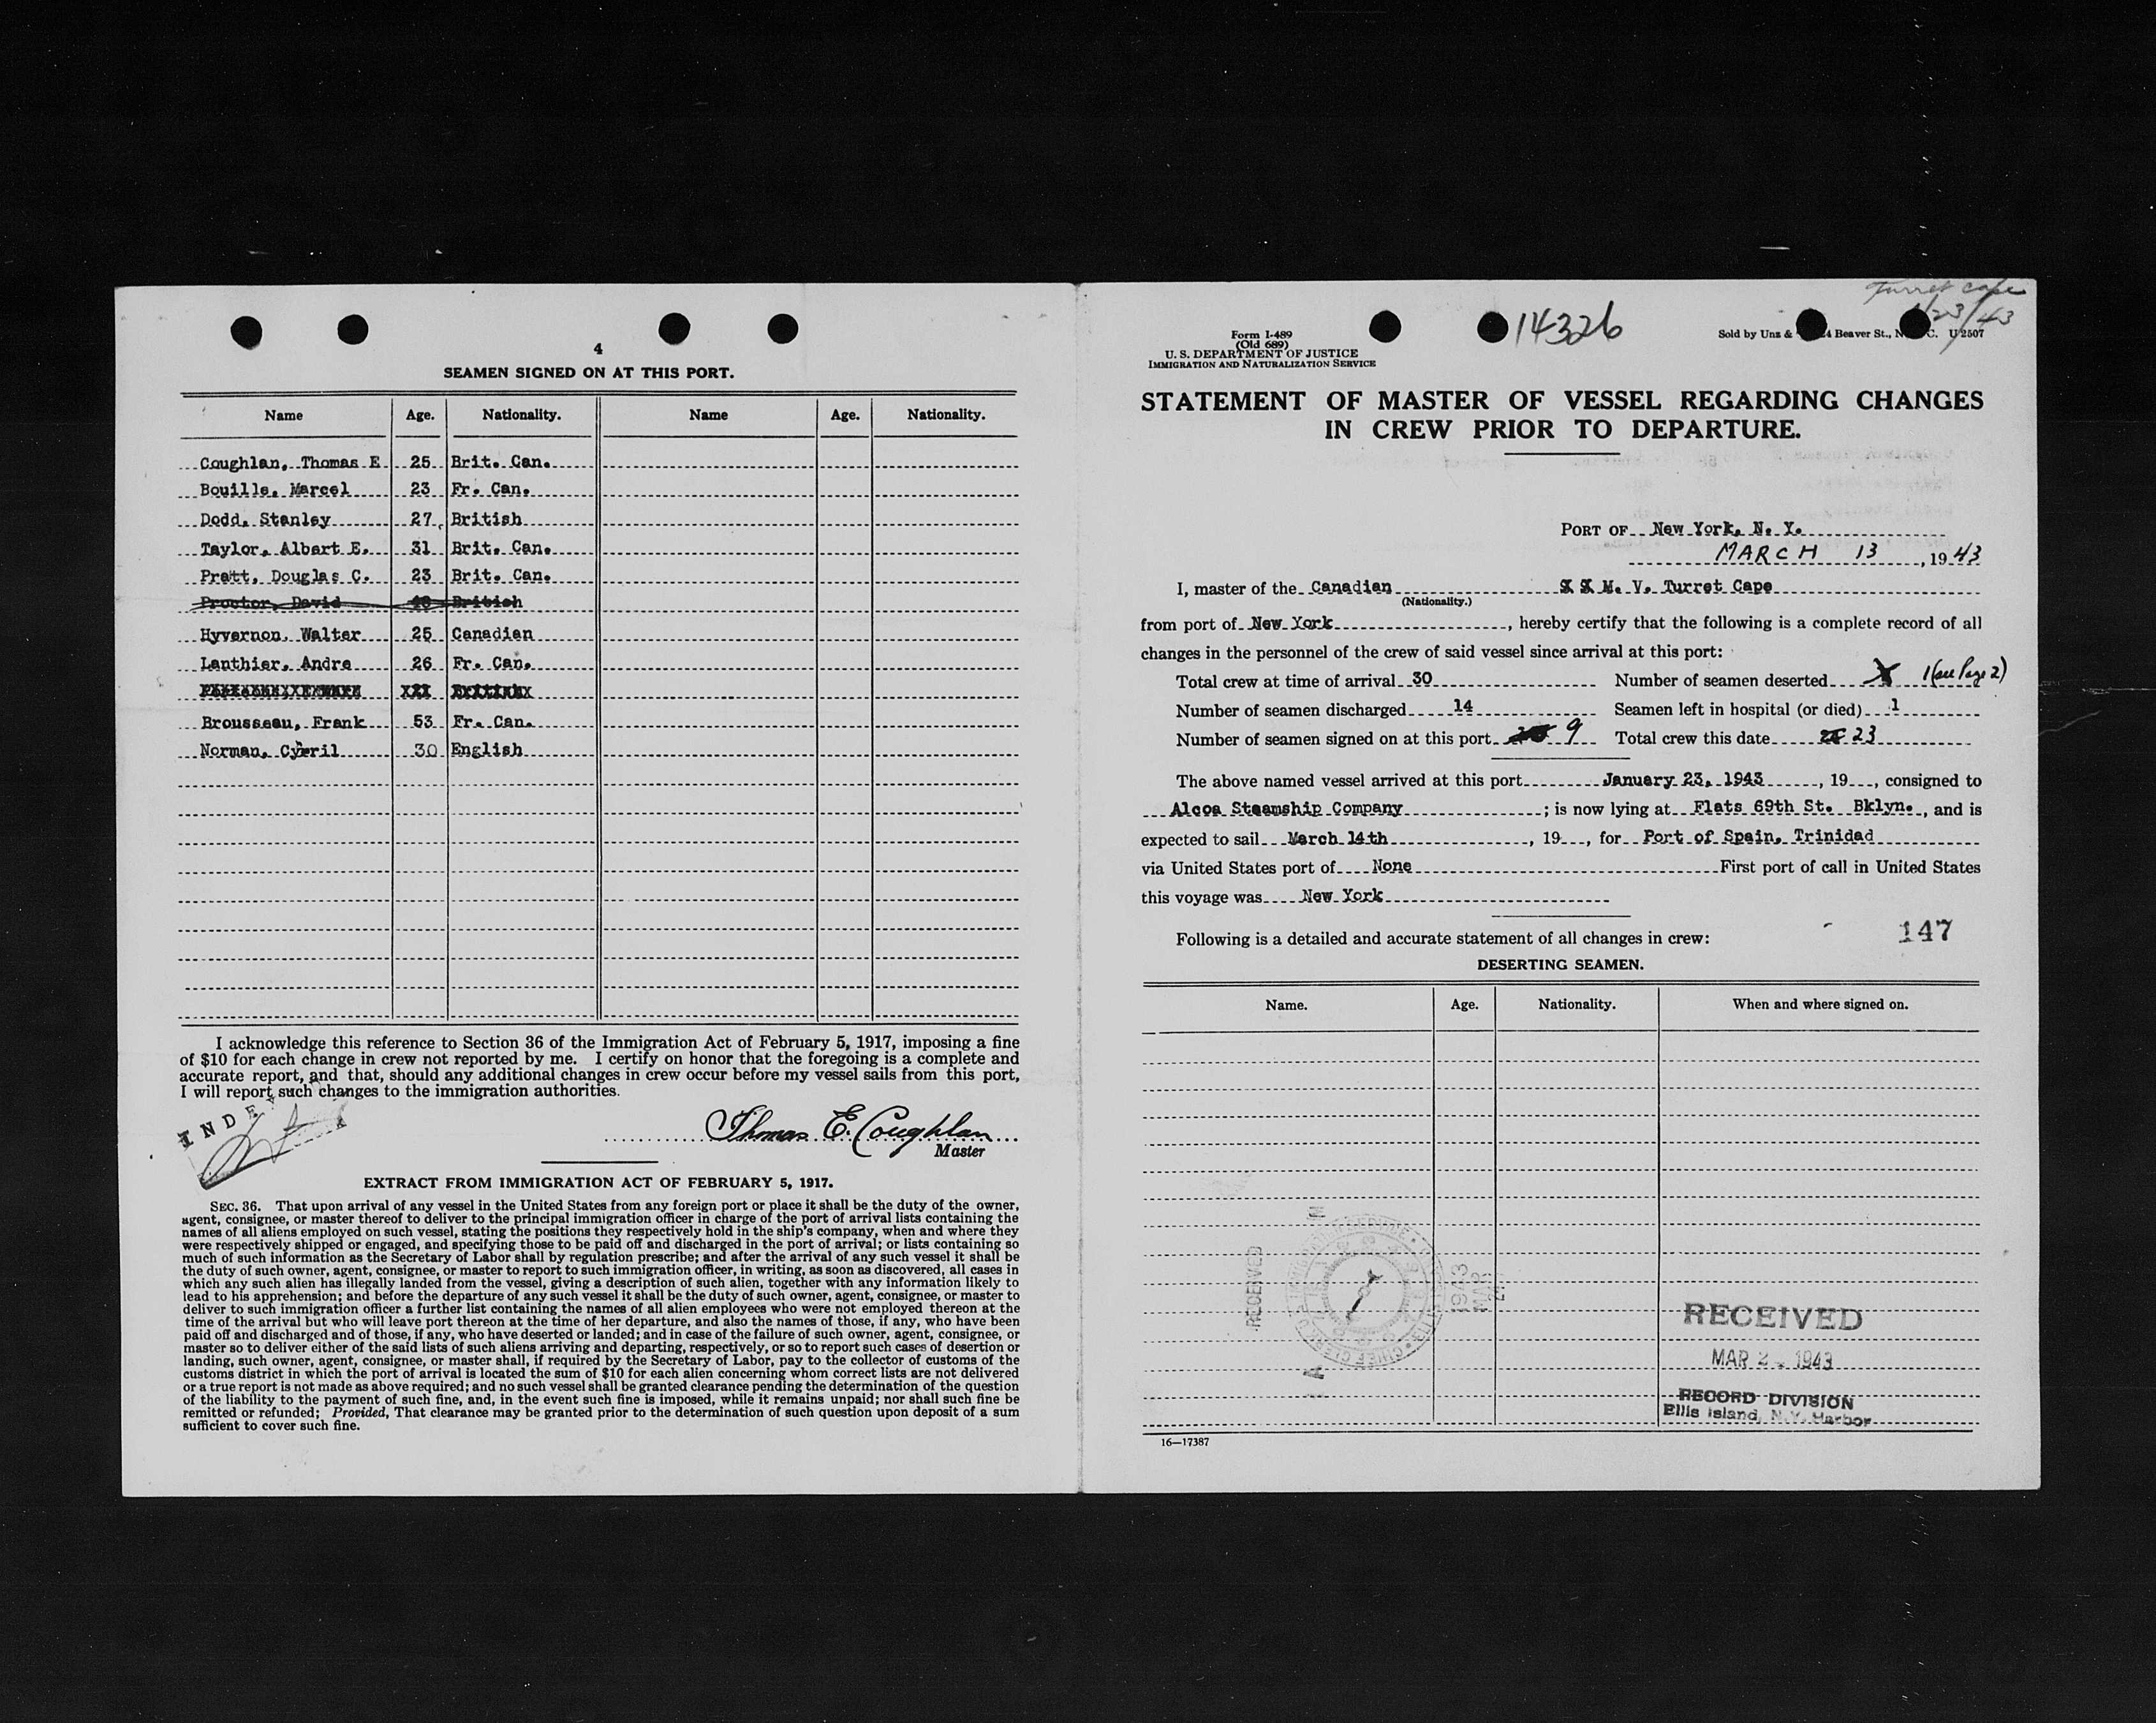 4
SEAMEN SIGNED ON AT THIS PORT.
Name Age. Nationality. Name Age. Nationality.
Coughlan, Thomas E 25 Brit. Can.
Bouille, Marcel 23 Fr. Can.
Dodd, Stanley 27 British
Taylor, Albert E. 31 Brit. Can.
Pratt, Douglas C. 23 Brit. Can.
Proctor, David 48 British
Hyvernon, Walter 25 Canadian
Lanthier, Andre 26 Fr. Can.
Brousseau, Frank 53 Fr. Can.
Norman, Cyrril 30 English
I acknowledge this reference to Section 36 of the Immigration Act of February 5, 1917, imposing a fine
of $10 for each change in crew not reported by me. I certify on honor that the foregoing is a complete and
accurate report, and that, should any additional changes in crew occur before my vessel sails from this port,
I will report such changes to the immigration authorities.
Thomas E. Coughlan
Master
EXTRACT FROM IMMIGRATION ACT OF FEBRUARY 5, 1917.
SEC. 36. That upon arrival of any vessel in the United States from any foreign port or place it shall be the duty of the owner,
agent, consignee, or master thereof to deliver to the principal immigration officer in charge of the port of arrival lists containing the
names of all aliens employed on such vessel, stating the positions they respectively hold in the ship's company, when and where they
were respectively shipped or engaged, and specifying those to be paid off and discharged in the port of arrival; or lists containing so
much of such information as the Secretary of Labor shall by regulation prescribe; and after the arrival of any such vessel it shall be
the duty of such owner, agent, consignee, or master to report to such immigration officer, in writing, as soon as discovered, all cases in
which any such alien has illegally landed from the vessel, giving a description of such alien, together with any information likely to
lead to his apprehension; and before the departure of any such vessel it shall be the duty of such owner, agent, consignee, or master to
deliver to such immigration officer a further list containing the names of all alien employees who were not employed thereon at the
time of the arrival but who will leave port thereon at the time of her departure, and also the names of those, if any, who have been
paid off and discharged and of those, if any, who have deserted or landed; and in case of the failure of such owner, agent, consignee, or
master so to deliver either of the said lists of such aliens arriving and departing, respectively, or so to report such cases of desertion or
landing, such owner, agent, consignee, or master shall, if required by the Secretary of Labor, pay to the collector of customs of the
customs district in which the port of arrival is located the sum of $10 for each alien concerning whom correct lists are not delivered
or a true report is not made as above required; and no such vessel shall be granted clearance pending the determination of the question
of the liability to the payment of such fine, and, in the event such fine is imposed, while it remains unpaid; nor shall such fine be
remitted or refunded; Provided, That clearance may be granted prior to the determination of such question upon deposit of a sum
sufficient to cover such fine.
Turret Cape
1/23/43
14326
Form I-489
(Old 689)
U. S. DEPARTMENT OF JUSTICE
IMMIGRATION AND NATURALIZATION SERVICE
Sold by Unz & Beaver St., N. C. U 2507
STATEMENT OF MASTER OF VESSEL REGARDING CHANGES
IN CREW PRIOR TO DEPARTURE.
PORT OF New York, N. Y.
MARCH 13, 1943
I, master of the Canadian X X M. V. Turret Cape
(Nationality.)
from port of New York, hereby certify that the following is a complete record of all
changes in the personnel of the crew of said vessel since arrival at this port:
Total crew at time of arrival 30 Number of seamen deserted X 1 (see Page 2)
Number of seamen discharged 14 Seamen left in hospital (or died) 1
Number of seamen signed on at this port 9 Total crew this date 23
The above named vessel arrived at this port January 23, 1943, 19, consigned to
Alcoa Steamship Company; is now lying at Flats 69th St. Bklyn., and is
expected to sail March 14th, 19, for Port of Spain, Trinidad
via United States port of None First port of call in United States
this voyage was New York
Following is a detailed and accurate statement of all changes in crew:
147
DESERTING SEAMEN.
Name. Age. Nationality. When and where signed on.
RECEIVED
1943
MAR
RECEIVED
MAR 2 1943
RECORD DIVISION
Ellis Island, N. Y. Harbor
16—17387